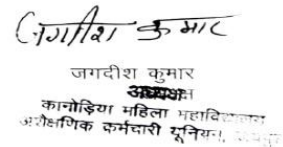 जगदीश कुमार
जगदीश कुमार
अध्यक्ष
कानोड़िया महिला महाविद्यालय
अशैक्षणिक कर्मचारी यूनियन,